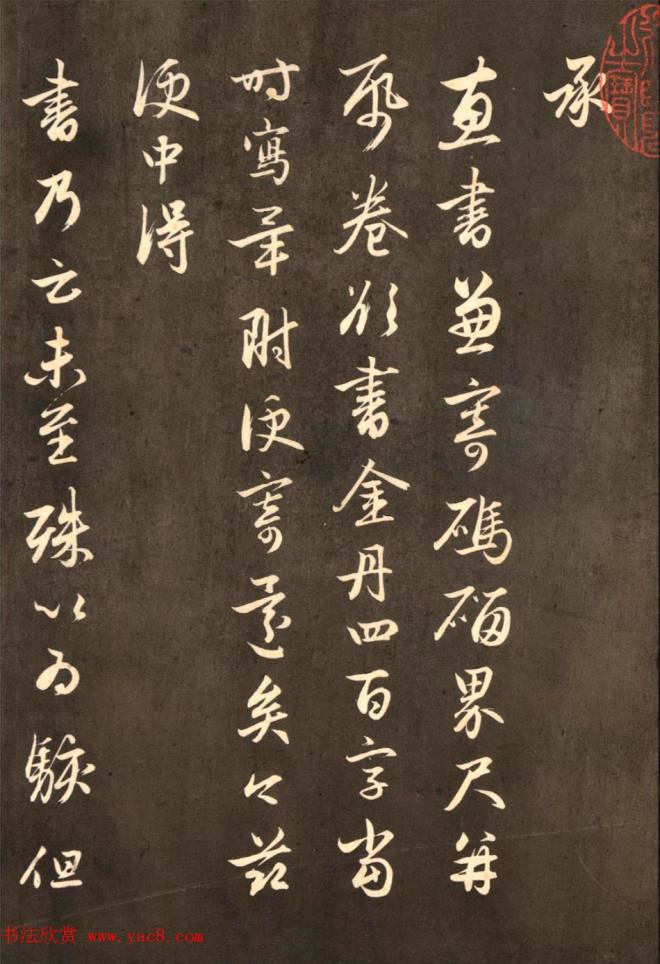 承
惠書兼寄碼碯界尺并
帋卷欲書金丹四百字當
時寫畢附便寄還矣今茲
便中得
書乃云未至殊以為駭但
书法欣赏 www.yac8.com